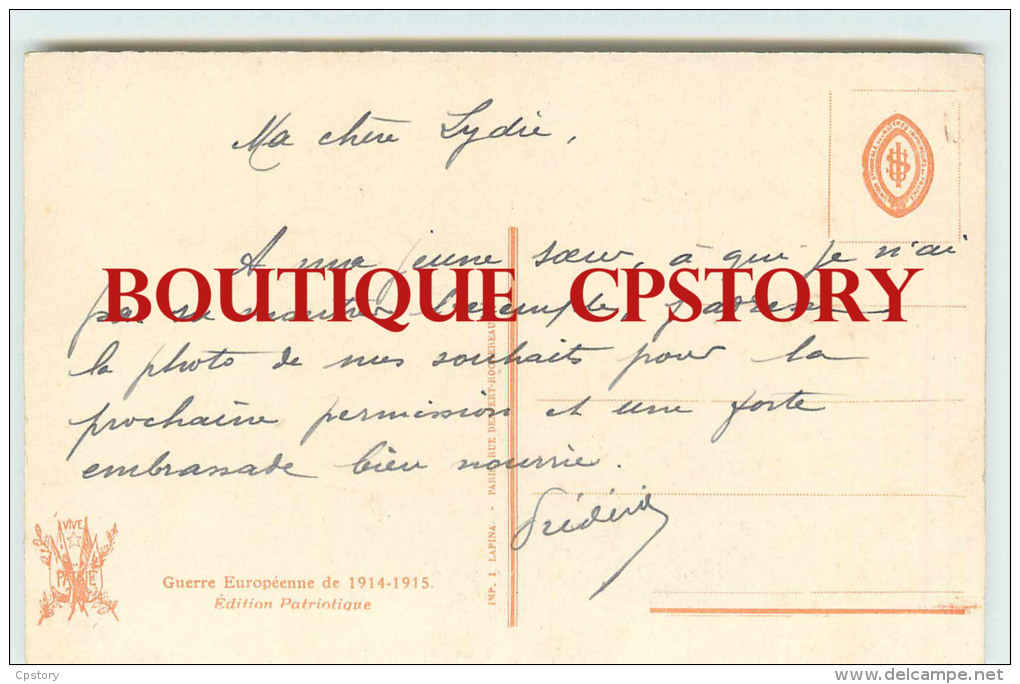 Ma chère Lydie,
A ma jeune sœur, à qui je n'ai
pas su montrer l'exemple, j'adresse
la photo de mes souhaits pour la
prochaine permission et une forte
embrassade bien nourrie.
Frédéric
BOUTIQUE CPSTORY
VIVE
PATRIE
Guerre Européenne de 1914-1915.
Édition Patriotique
IMP. I LAPINA. - PARIS RUE DENFERT-ROCHEREAU
Cpstory
www.delcampe.net